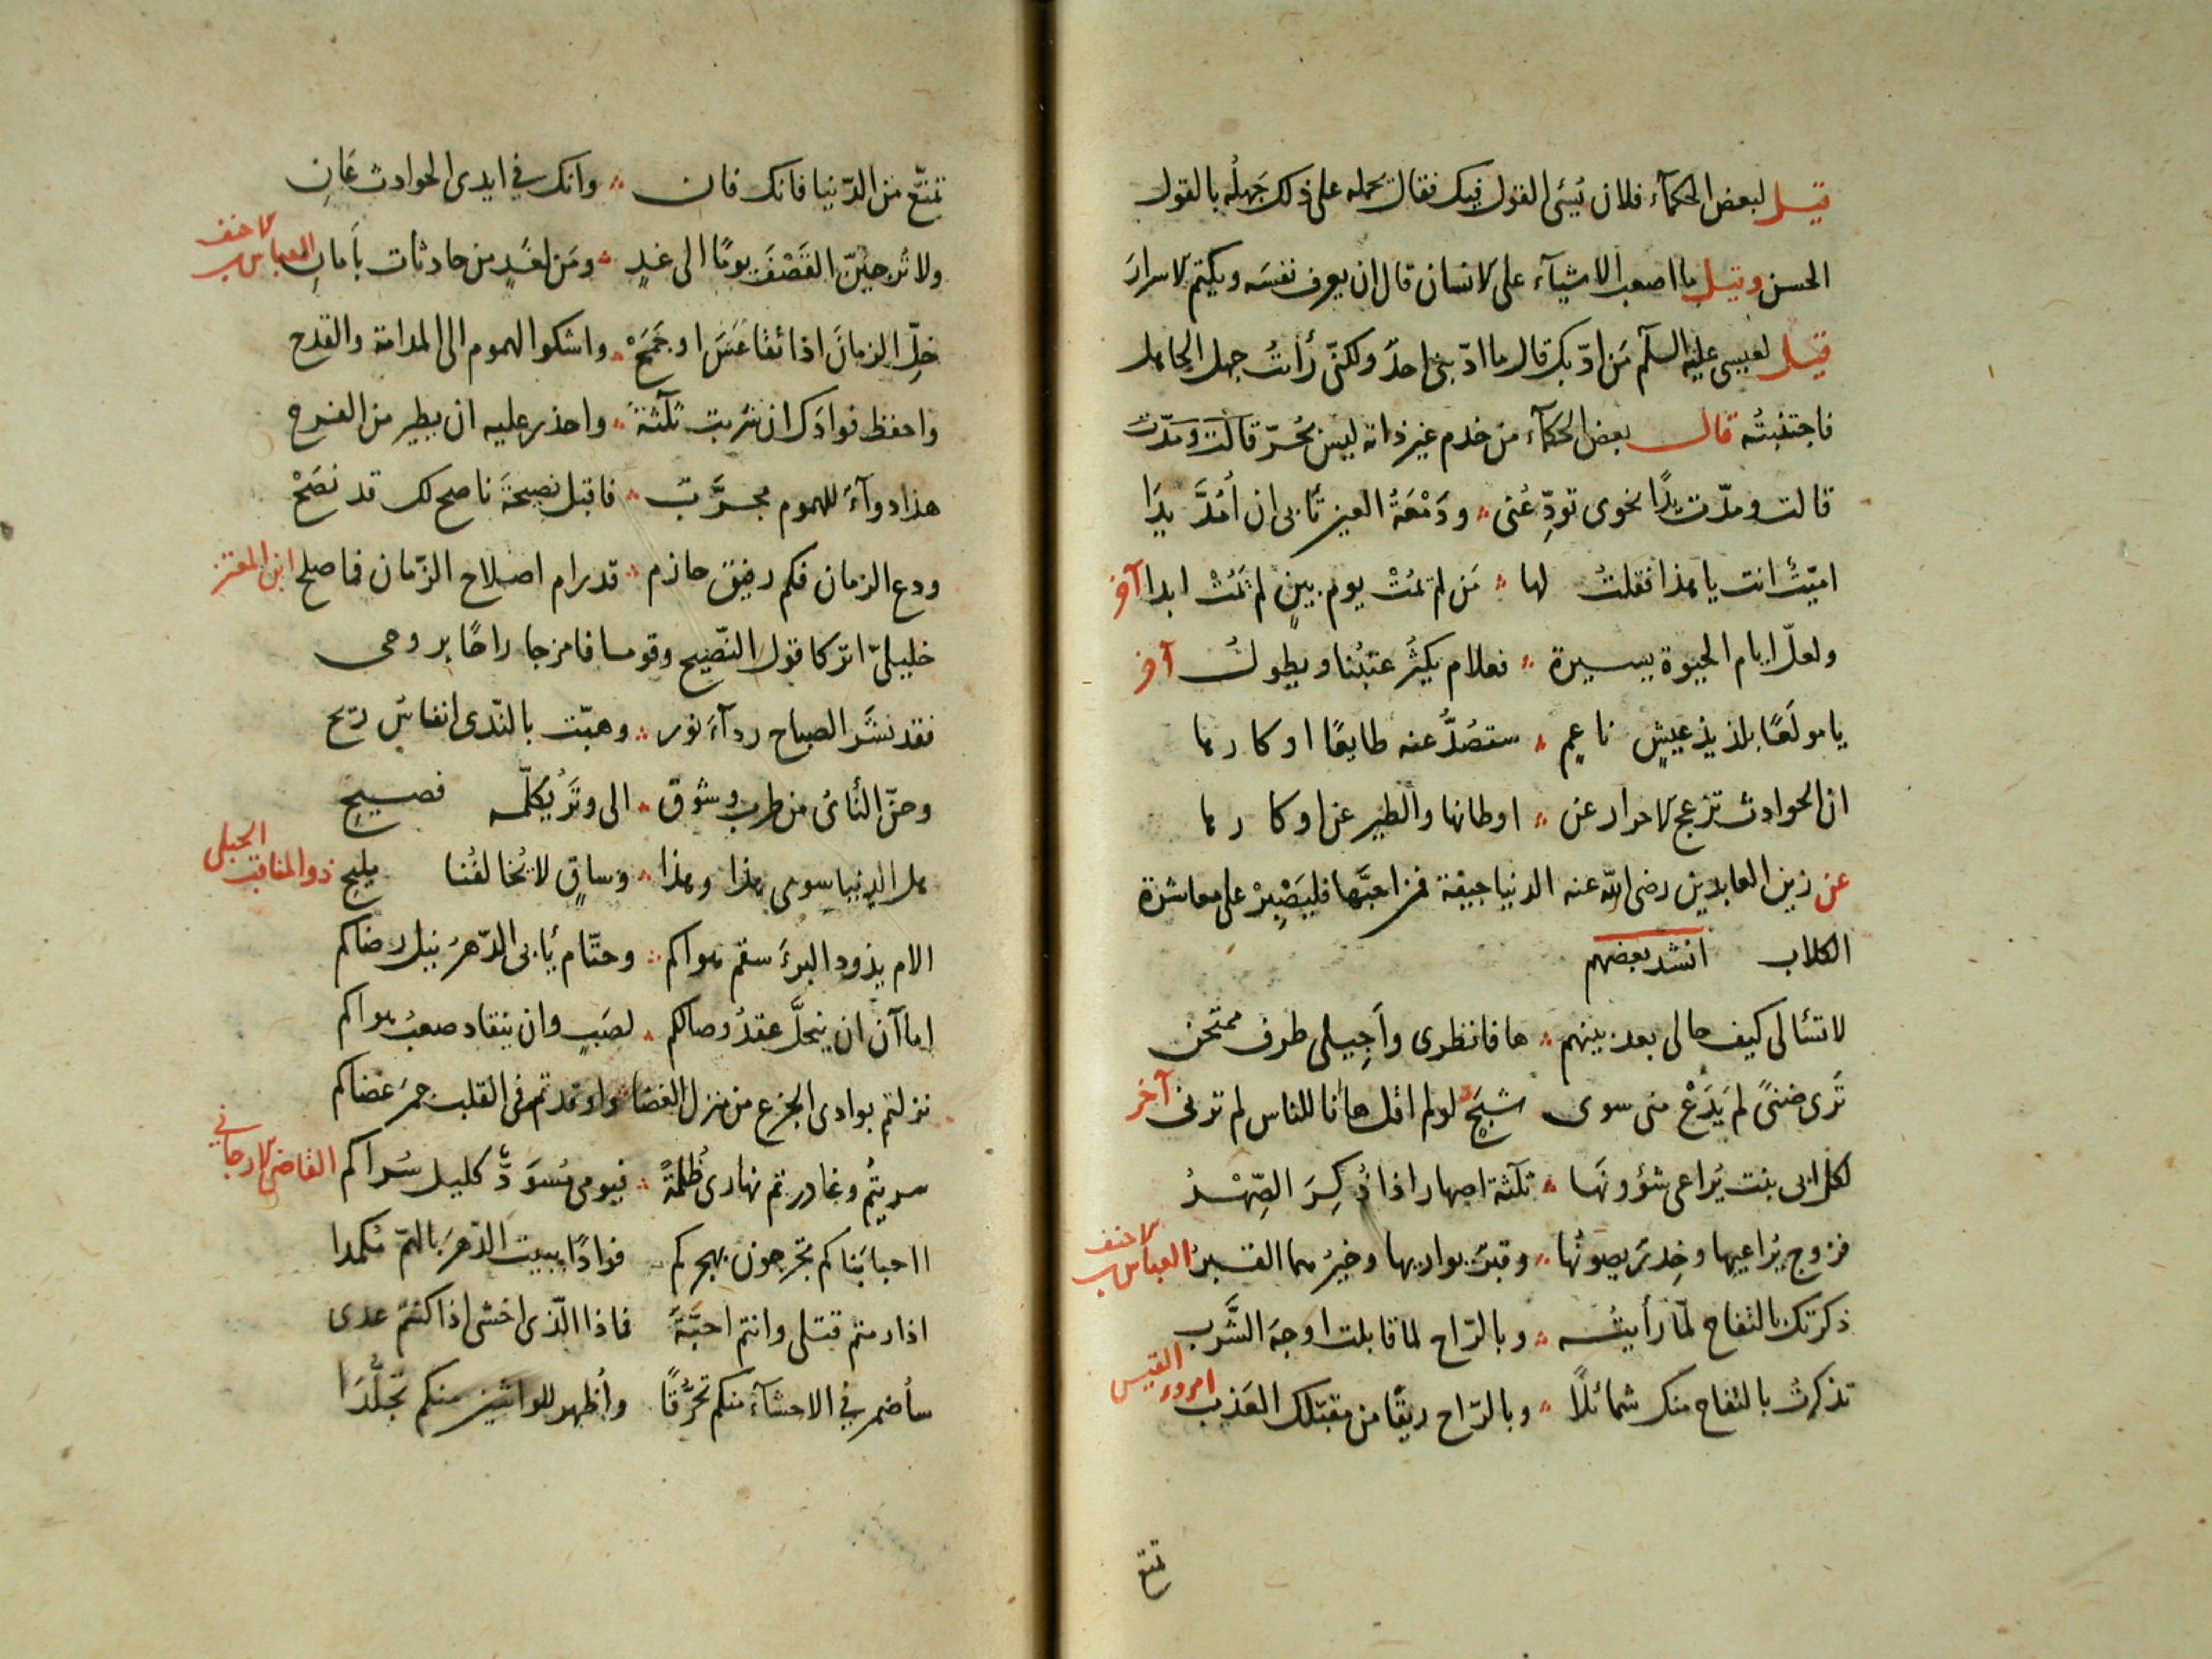 قيل لبعض الحكمآء فلان يُسئ القول فيك فقال يحمله على ذلك جَهلُه بالقول
الحسن وقيل ما اصعب الاشيآء على الانسان قال ان يعرف نفسَه ويكتم الاسرارَ
قيل لعيسى عليه السلم مَن ادّبك قال ما ادّبنى احدٌ ولكنّى رأيتُ جهل الجاهل
فاجتنبتُه قال بعض الحكمآء من خدم غير ذاته ليس بحُرّ قالَت وَمَدّت
قالت ومدّت يدًا نحوى تودِّعُنى ؞ ودَمْعَةُ العين تأبى ان أمُدَّ يدَا
اميّتٌ انت يا هذا فقلتُ لها ؞ مَن لم يَمُتْ يوم بينٍ لم يَمُتْ ابدا آخر
ولعلّ ايام الحيوة يسيرة ؞ فعلام يكثُر عتبُنا ويطولُ آخر
يا مولَعًا بلذيذ عيشٍ ناعمٍ ؞ ستصُدُّ عنه طايعًا او كارها
ان الحوادث تزعج الاحرار عن ؞ اوطانها والطير عن اوكارها
عن زين العابدين رضى الله عنه الدنيا جيفة فمن احبَّها فليَصْبِرْ على معاشرة
الكلاب انشد بعضهم
لا تسئالى كيف حالى بعد بينهم ؞ ها فانظرى وأَجِيلى طرف ممتحَن
تَرى ضنىً لم يَدَعْ منى سوى شبَحٍ ؞ لو لم اقل ها انا للناس لم ترنى آخر
لكل ابى بنت يُراعى شؤونَها ؞ ثلٰثة اصهار اذا ذُكِرَ الصِّهْرُ
فزوج يُراعيها وخِدرٌ يصونُها ؞ وقبرٌ يواريها وخيرُهما القبرُ العباس بن الاحنف
ذكرتك بالتفاح لمّا رأيتُه ؞ وبالرّاح لما قابلت اوجهَ الشَّرب
تذكرتُ بالتفاح منك شمائلًا ؞ وبالرّاح ريقًا من مقبّلك العَذب امرء القيس
تمتع
تمتَّع من الدّنيا فانك فان ؞ وانك فى ايدى الحوادث عَانِ
ولا تُرجِئَنّ القَصْفَ يومًا الى غدٍ ؞ ومَن لغَدٍ من حادثات بأمانِ العباس بن الاحنف
خلّ الزمانَ اذا تقاعَسَ او جَمَحْ ؞ واشكوا الهموم الى المدامة والقدح
واحفظ فوادَك ان شربت ثلٰثةً ؞ واحذر عليه ان يطير من الفرح
هذا دوآءٌ للهموم مجرَّبٌ ؞ فاقبل نصيحةَ ناصح لك قد نصَحْ
ودع الزمان فكم رفيق حازم ؞ قد رام اصلاح الزّمان فما صلح ابن المعتز
خليلىّ اتركا قول النّصيح وقوما فامزجا راحًا بروحى
فقد نشَر الصباح ردآءَ نور ؞ وهبّت بالنّدى انفاس ريح
وحنّ النّائ من طرب وشوق ؞ الى وتَرٍ يُكلّمه فصيحِ
هل الدنيا سوى هذا وهذا ؞ وساقٍ لا يُخالفُنا مليحِ ذو المناقب الجبلى
الام يذود البرءَ سقم هواكم ؞ وحتّام يأبى الدّهرُ نيل رضاكم
اما آن ان ينحلَّ عقدُ وصالكم ؞ لصَبٍ وان ينقاد صعبُ هواكم
نزلتم بوادى الجزع من منزل الغضا ؞ واوقدتم فى القلب جمرَ غضاكم
سريتُم وغادرتم نهارى ظُلمةً ؞ فيومى مُسوَدٌّ كليل سُراكم القاضى الارجانى
ااحبابَنا كم تجرحون بهجركم فوادًا يبيت الدّهرَ بالهمّ مُكمدا
اذا رمتم قتلى وانتم احبّةً فماذا الّذى اخشى اذا كنتم عدى
سأضمر فى الاحشآءِ منكم تحرُّقًا وأظهر للواشين منكم تجلُّدَا